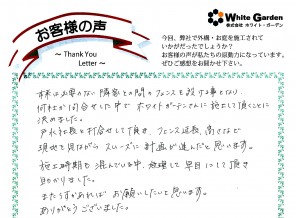 お客様の声
～ Thank You
Letter ～
White Garden
株式会社 ホワイト・ガーデン
今回、弊社で外構・お庭を施工されて
いかがだったでしょうか？
お客様の声が私たちの励みになっています。
ぜひご感想をお聞かせ下さい。
隣家との間のフェンスを設ける事となり、
何社か問合せした中で ホワイトガーデンさんに施工して頂くことに
決めました。
打合せして頂き、フェンス延長、高さなど
現地を見ながら スムーズに 計画が進んだと思います。
施工時期も混んでいる中、無理して 早目にして頂き
助かりました。
また何かあれば お願いしたいと思います。
ありがとうございました。